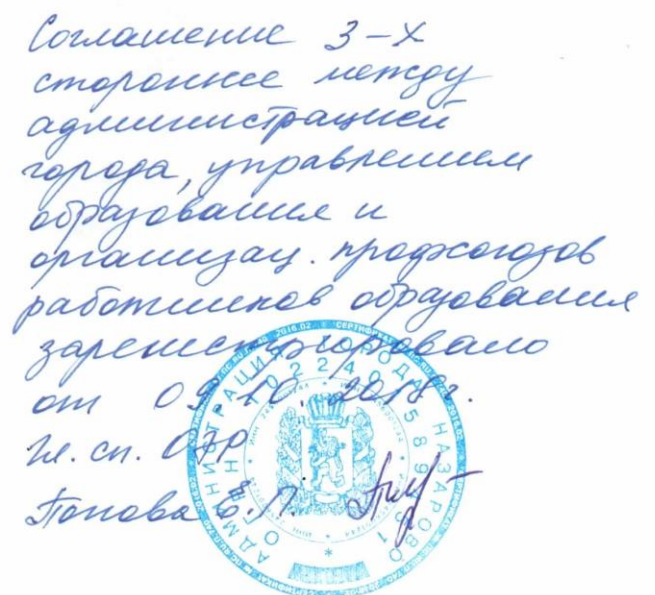 Соглашение 3-х
стороннее между
администрацией
города, управлением
образования и
организац. профсоюзов
работников образования
зарегистрировано
от 09.10.2018г.
Гл. сп. ОТР
Попова Е.П.
АДМИНИСТРАЦИЯ ГОРОДА НАЗАРОВО